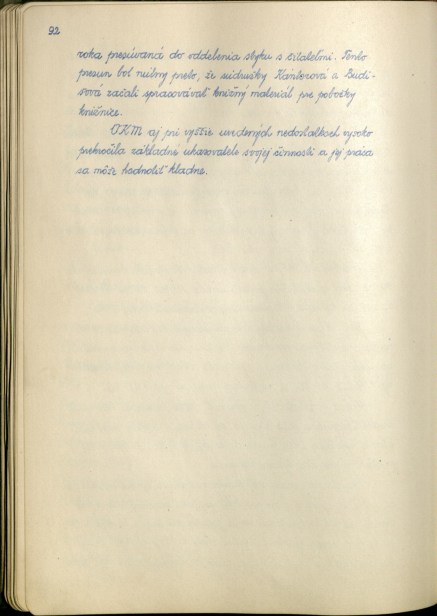 92
roka presúvaná do oddelenia styku s čitateľmi. Tento
presun bol nutný preto, že súdružky Kántorová a Budi-
sová začali spracovávať knižný materiál pre pobočky
knižnice.
OKM aj pri vyššie uvedených nedostatkoch vysoko
prekročila základné ukazovatele svojej činnosti a jej práca
sa môže hodnotiť kladne.